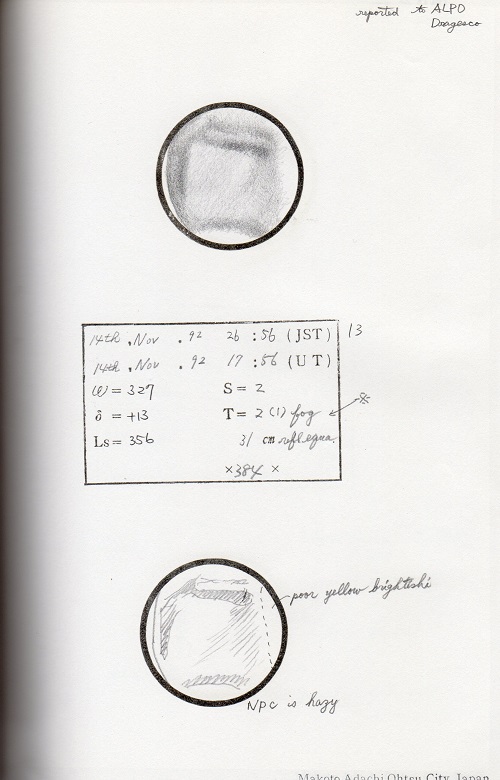 reported to ALPO
Dragesco
14th , Nov . 92 26 : 56 (JST) 13
14th , Nov . 92 17 : 56 (UT)
ω = 327 S = 2
δ = +13 T = 2 (1) fog
Ls = 356 31 cm
×384 ×
poor yellow
NPC is hazy
Makoto Adachi Ohtsu City, Japan